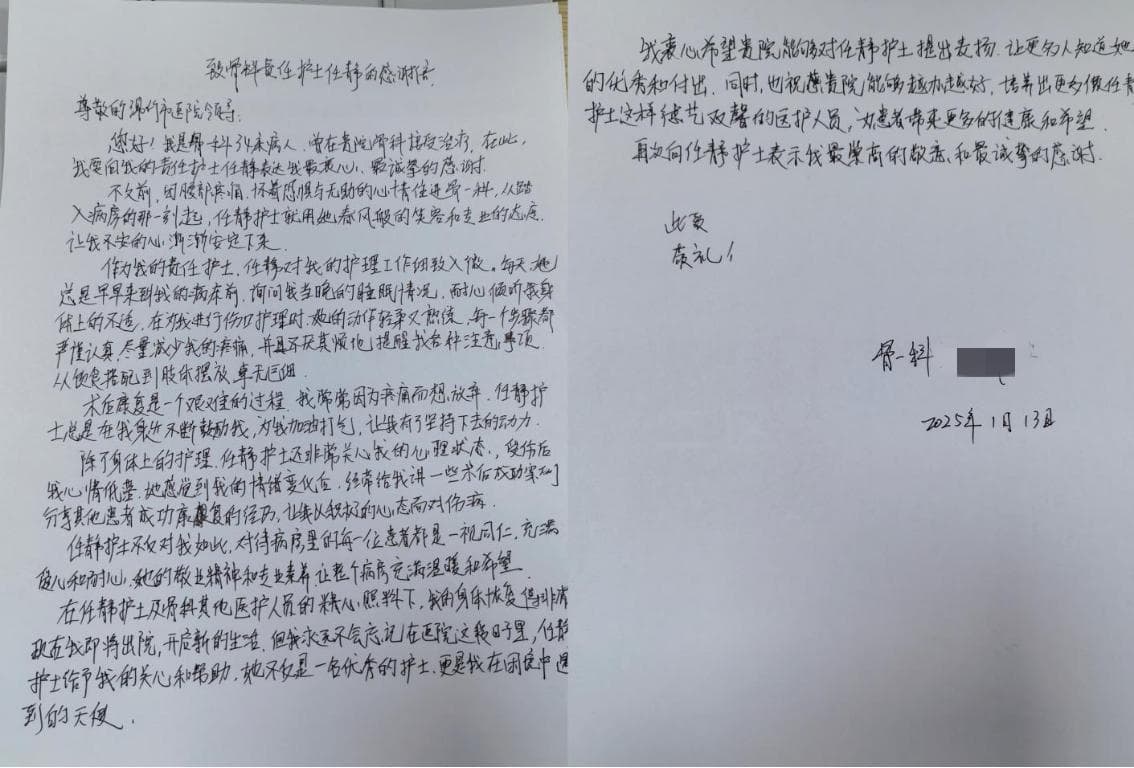 致骨科责任护士任静的感谢信
尊敬的潞州市医院领导:
您好!我是骨一科34床病人,曾在贵院骨科接受治疗,在此,
我要向我的责任护士任静表达我最衷心、最诚挚的感谢.
不久前,因腿部疼痛,怀着恐惧与无助的心情住进骨一科,从踏
入病房的那一刻起,任静护士就用她春风般的笑容和专业的态度
让我不安的心渐渐安定下来
作为我的责任护士,任静对我的护理工作细致入微。每天她
总是早早来到我的病床前,询问我当晚的睡眠情况,耐心倾听我身
体上的不适,在为我进行伤口护理时,她的动作轻柔又熟练,每一个步骤都
严谨认真,尽量减少我的疼痛,并且不厌其烦地提醒我各种注意事项.
从饮食搭配到肢体摆放,事无巨细.
术后康复是一个艰难的过程.我常常因为疼痛而想放弃.任静护
士总是在我身边不断鼓励我,为我加油打气,让我有了坚持下去的动力.
除了身体上的护理,任静护士还非常关心我的心理状态,受伤后
我心情低落.她感觉到我的情绪变化后,经常给我讲一些术后成功案例
分享其他患者成功康复的经历,让我以积极的心态面对伤病.
任静护士不仅对我如此,对待病房里的每一位患者都是一视同仁,充满
爱心和耐心.她的敬业精神和专业素养让整个病房充满温暖和希望
在任静护士及骨科其他医护人员的精心照料下,我的身体恢复得非常
现在我即将出院,开启新的生活.但我永远不会忘记在医院这段日子里,任静
护士给予我的关心和帮助.她不仅是一名优秀的护士.更是我在困境中遇
到的天使.
我衷心希望贵院能够对任静护士提出表扬.让更多人知道她
的优秀和付出.同时,也祝愿贵院能够越办越好,培养出更多像任静
护士这样德艺双馨的医护人员,为患者带来更多的健康和希望.
再次向任静护士表示我最崇高的敬意和最诚挚的感谢.
此致
敬礼!
骨一科
2025年1月13日